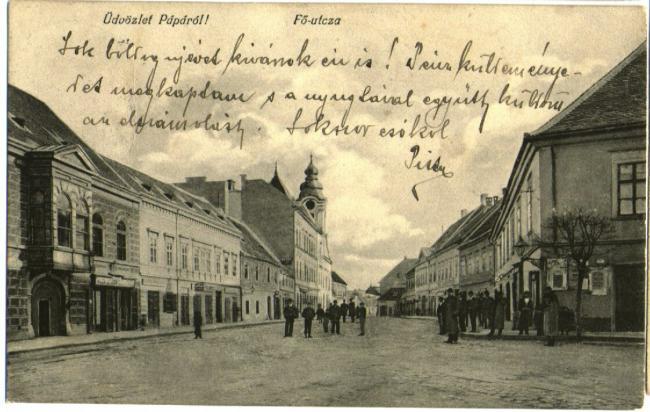 Üdvözlet Pápáról!
Fő-utcza
Sok boldog újévet kivánok én is! Pénzküldeménye-
det megkaptam s a nyugtával együtt küldöm
az elszámolást. Sokszor csókol
Pista